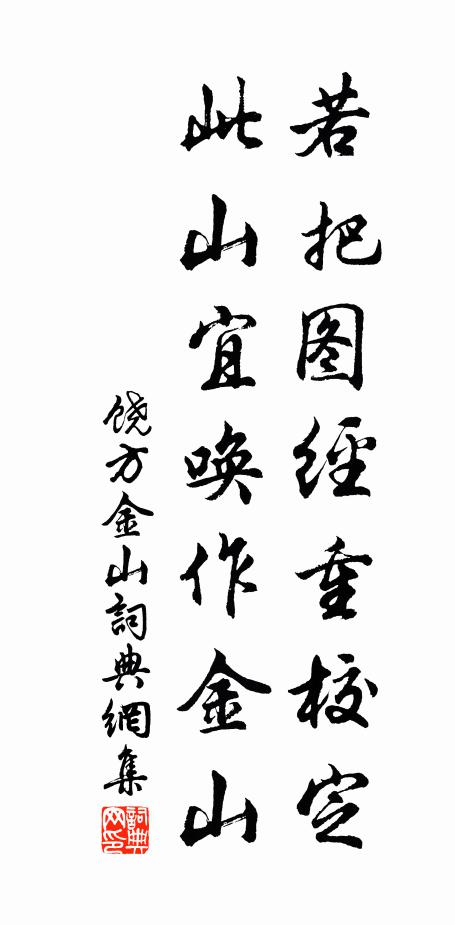 若把图經重校定
此山宜唤作金山
饶方金山詞典網集
詞典网印